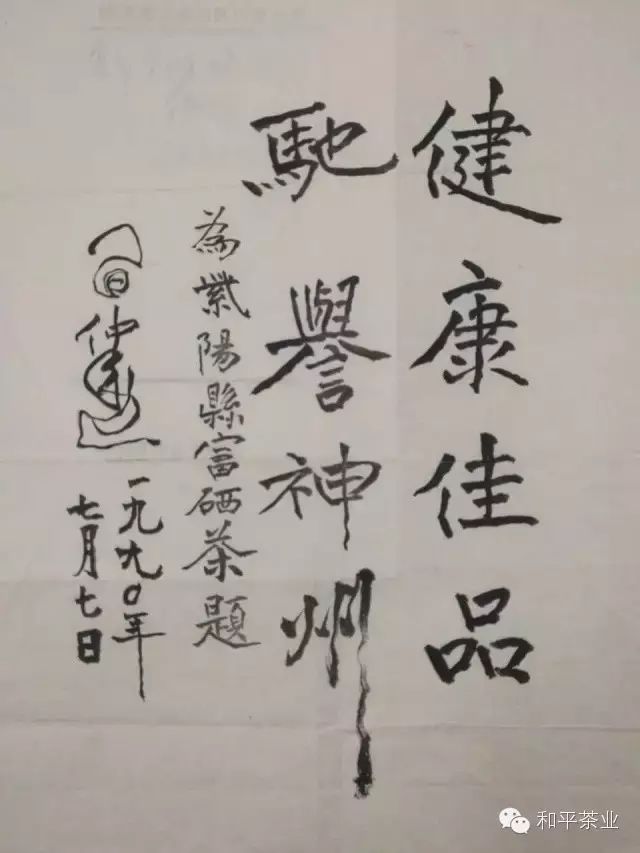 健康佳品
馳譽神州
為紫陽縣富硒茶題
仲
一九九〇年
七月七日
和平茶业